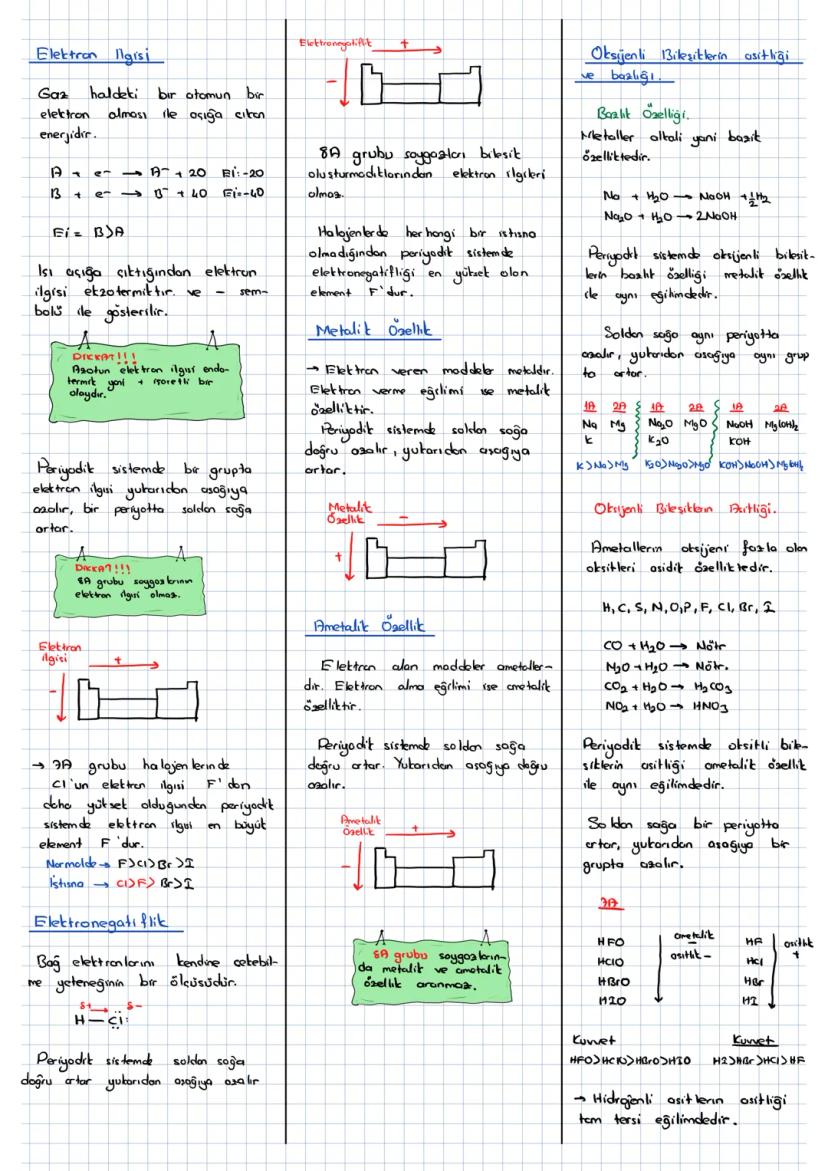 Elektron Ilgisi
Gaz haldeki bir atomun bir
elektron alması ile açığa çıkan
enerjidir.
A + e⁻ → A⁻ + 20 Ei:-20
B + e⁻ → B⁻ + 40 Ei=-40
Ei = B>A
Isı açığa çıktığından elektron
ilgisi ekzotermiktir. ve - sem-
bolü ile gösterilir.
DİKKAT!!!
Azotun elektron ilgisi endo-
termik yani + işaretli bir
olaydır.
Periyodik sistemde bir grupta
elektron ilgisi yukarıdan aşağıya
azalır, bir periyotta soldan sağa
artar.
DİKKAT!!!
8A grubu soygazlarının
elektron ilgisi olmaz.
Elektron
ilgisi +
-
→ 7A grubu halojenlerinde
Cl'un elektron ilgisi F'dan
daha yüksek olduğundan periyodik
sistemde elektron ilgisi en büyük
element F'dur.
Normalde → F>Cl>Br>I
İstisna → Cl>F>Br>I
Elektronegatiflik
Bağ elektronlarını kendine çekebil-
me yeteneğinin bir ölçüsüdür.
δ+ δ-
H-Cl:
Periyodik sistemde soldan sağa
doğru artar yukarıdan aşağıya azalır
Elektronegatiflik +
-
8A grubu soygazları bileşik
oluşturmadıklarından elektron ilgileri
olmaz.
Halojenlerde herhangi bir istisna
olmadığından periyodik sistemde
elektronegatifliği en yüksek olan
element F'dur.
Metalik Özellik
→ Elektron veren maddeler metaldır.
Elektron verme eğilimi ise metalik
özelliktir.
Periyodik sistemde soldan sağa
doğru azalır, yukarıdan aşağıya
artar.
Metalik
Özellik -
+
Ametalik Özellik
Elektron alan maddeler ametaller-
dir. Elektron alma eğilimi ise ametalik
özelliktir.
Periyodik sistemde soldan sağa
doğru artar. Yukarıdan aşağıya doğru
azalır.
Ametalik
Özellik +
-
8A grubu soygazların-
da metalik ve ametalik
özellik aranmaz.
Oksijenli Bileşiklerin asitliği
ve bazlığı.
Bazlık Özelliği.
Metaller alkali yani bazik
özelliktedir.
Na + H₂O → NaOH + ½H₂
Na₂O + H₂O → 2NaOH
Periyodik sistemde oksijenli bileşik-
lerin bazlık özelliği metalik özellik
ile aynı eğilimdedir.
Soldan sağa aynı periyotta
azalır, yukarıdan aşağıya aynı grup
ta artar.
1A 2A 1A 2A 1A 2A
Na Mg Na₂O MgO NaOH Mg(OH)₂
K K₂O KOH
K>Na>Mg K₂O>Na₂O>MgO KOH>NaOH>Mg(OH)₂
Oksijenli Bileşiklerin Asitliği.
Ametallerin oksijeni fazla olan
oksitleri asidik özelliktedir.
H, C, S, N, O, P, F, Cl, Br, I
CO + H₂O → Nötr
N₂O + H₂O → Nötr.
CO₂ + H₂O → H₂CO₃
NO₂ + H₂O → HNO₃
Periyodik sistemde oksitli bile-
şiklerin asitliği ametalik özellik
ile aynı eğilimdedir.
Soldan sağa bir periyotta
artar, yukarıdan aşağıya bir
grupta azalır.
7A
HFO ametalik HF asitlik
HClO asitlik - HCl +
HBrO HBr
HIO HI
Kuvvet Kuvvet
HFO>HClO>HBrO>HIO HI>HBr>HCl>HF
→ Hidrojenli asitlerin asitliği
tam tersi eğilimdedir.